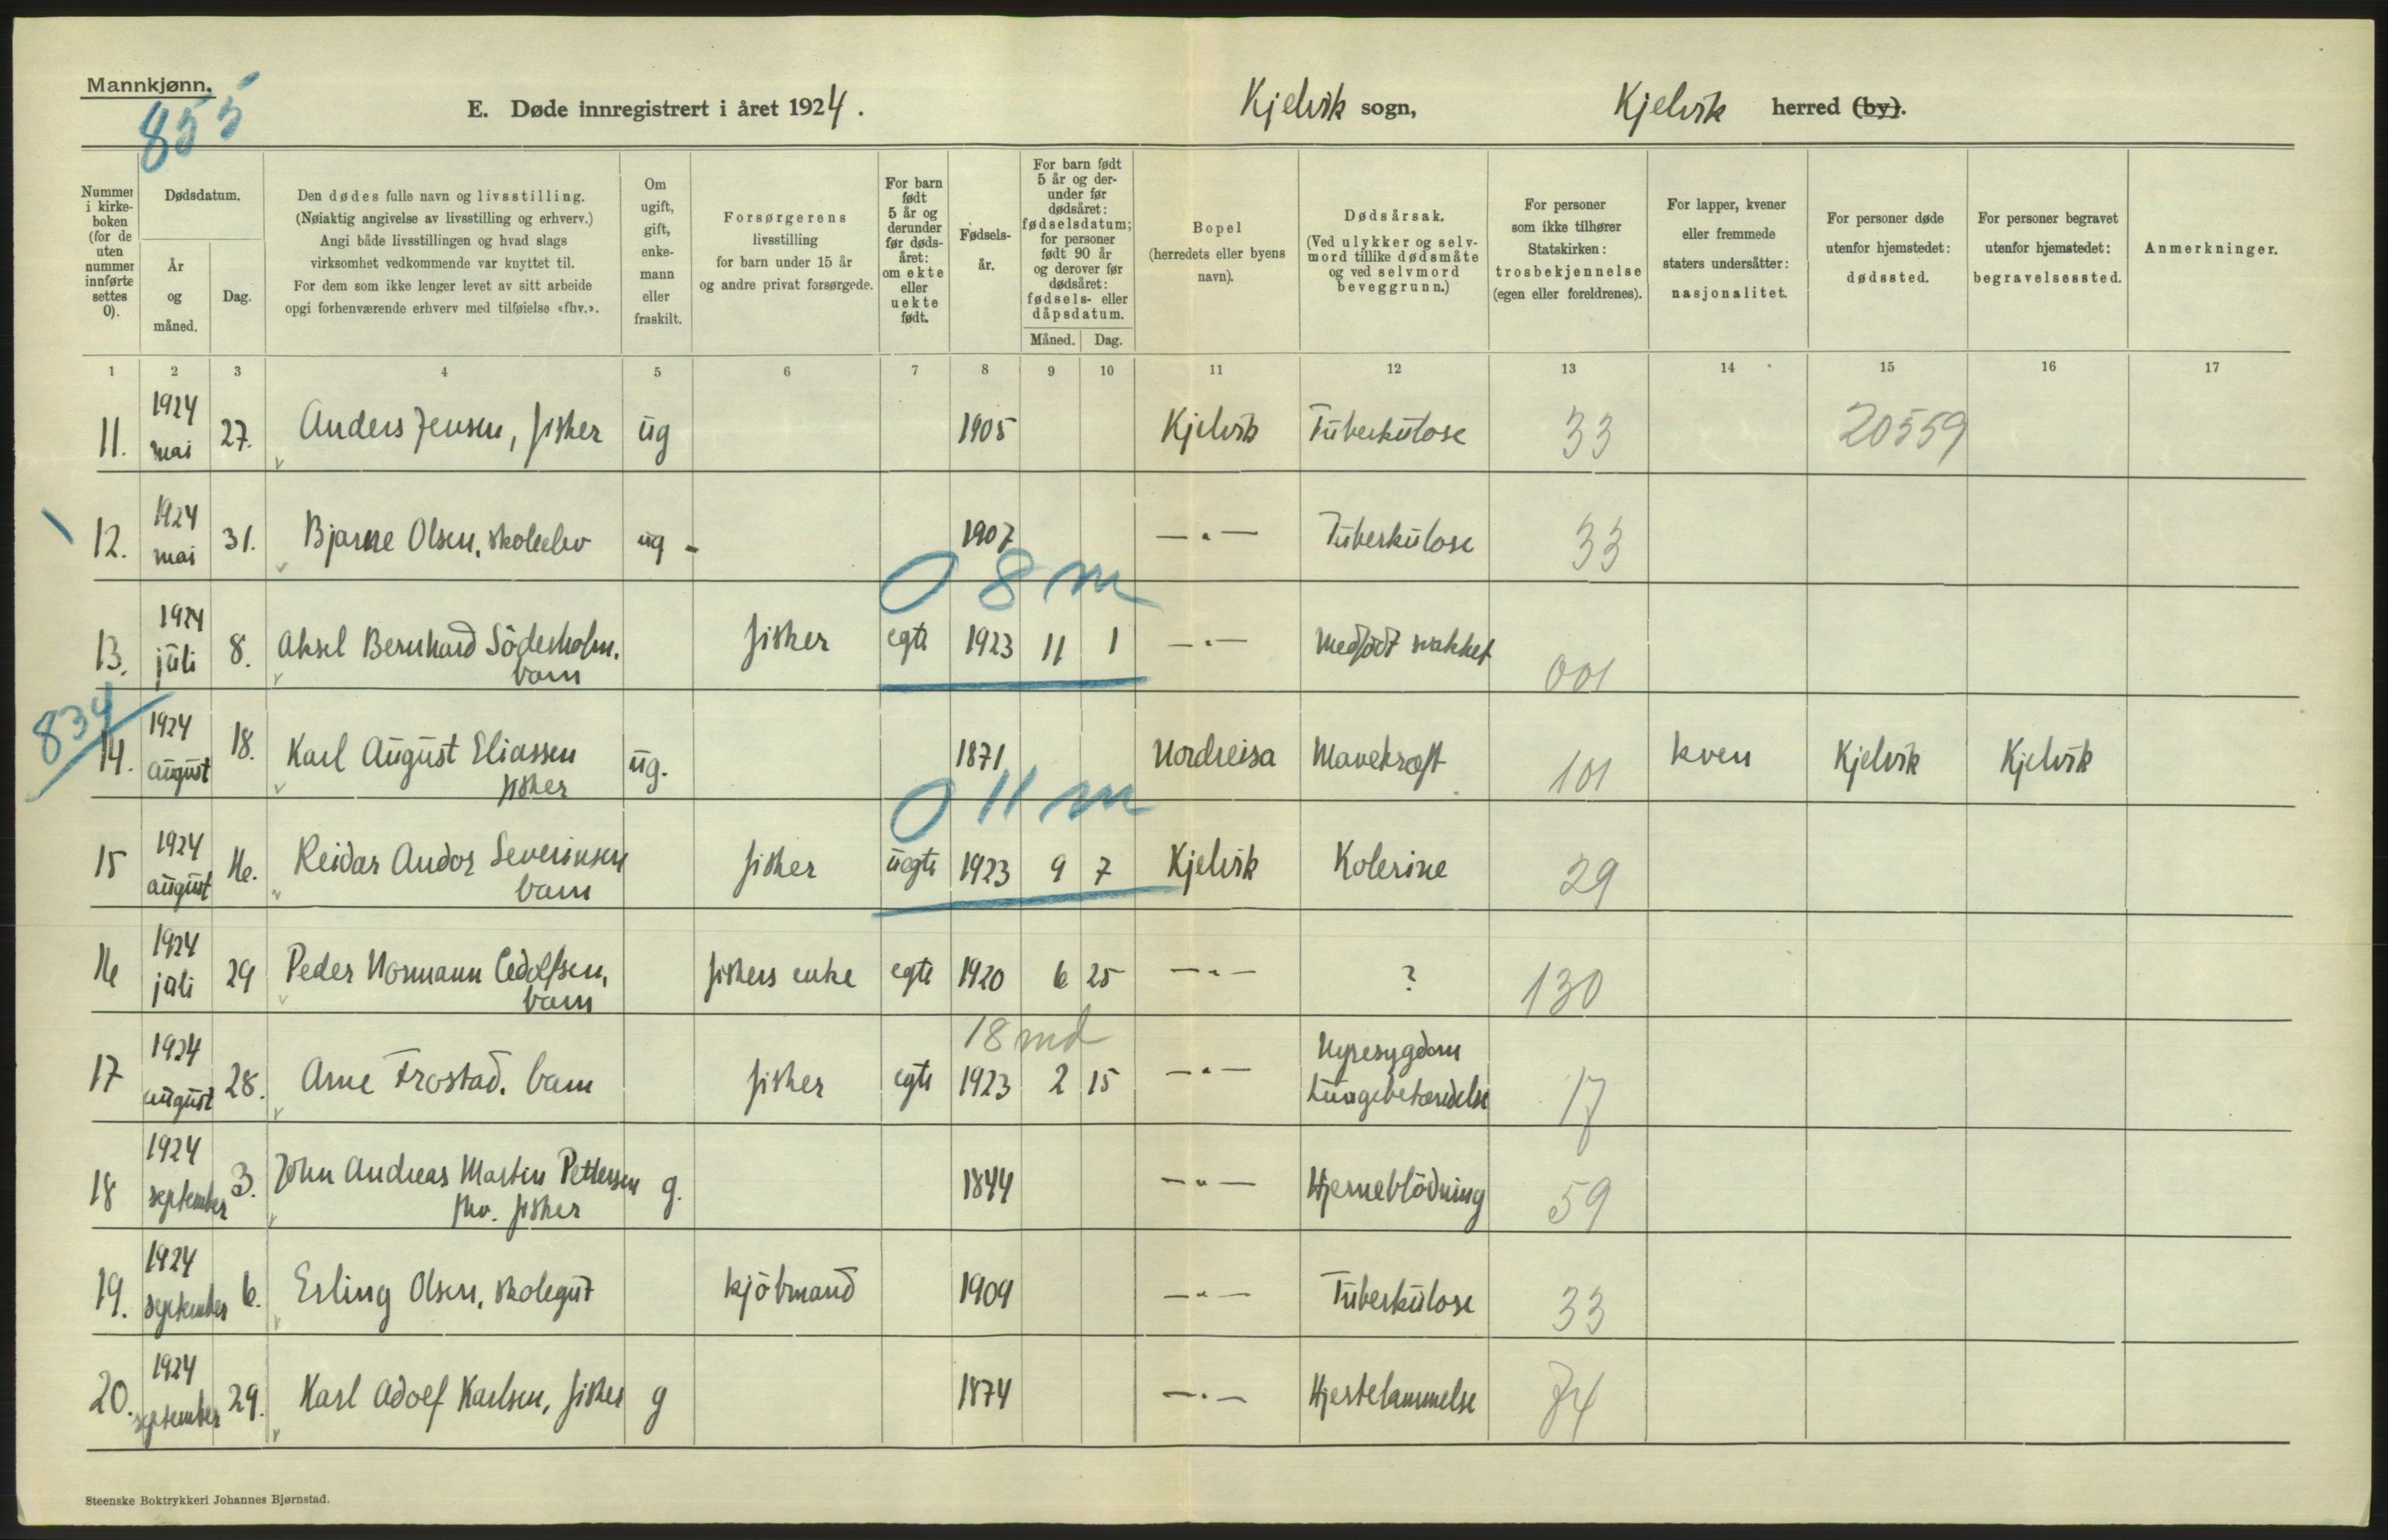 Mannkjønn.
855
E. Døde innregistrert i året 1924. Kjelvik sogn, Kjelvik herred (by).
Nummer i kirkeboken (for de uten nummer innførte settes 0).
Dødsdatum.
År og måned.
Dag.
Den dødes fulle navn og livsstilling.
(Nøiaktig angivelse av livsstilling og erhverv.)
Angi både livsstillingen og hvad slags
virksomhet vedkommende var knyttet til.
For dem som ikke lenger levet av sitt arbeide
opgi forhenværende erhverv med tilføielse «fhv.».
Om ugift, gift, enkemann eller fraskilt.
Forsørgerens
livsstilling
for barn under 15 år
og andre privat forsørgede.
For barn født 5 år og derunder før dødsåret: om ekte eller uekte født.
Fødselsår.
For barn født 5 år og derunder før dødsåret: fødselsdatum; for personer født 90 år og derover før dødsåret: fødsels- eller dåpsdatum.
Måned. Dag.
Bopel
(herredets eller byens
navn).
Dødsårsak.
(Ved ulykker og selvmord tillike dødsmåte og ved selvmord beveggrunn.)
For personer
som ikke tilhører
Statskirken:
trosbekjennelse
(egen eller foreldrenes).
For lapper, kvener
eller fremmede
staters undersåtter:
nasjonalitet.
For personer døde
utenfor hjemstedet:
dødssted.
For personer begravet
utenfor hjemstedet:
begravelsessted.
Anmerkninger.
1 2 3 4 5 6 7 8 9 10 11 12 13 14 15 16 17
11. 1924 mai 27. Anders Jensen, fisker ug 1905 Kjelvik Tuberkulose 33 20559
12. 1924 mai 31. Bjarne Olsen, skoleelev ug - 1907 —"— Tuberkulose 33
0 8 m
13. 1924 juli 8. Aksel Bernhard Söderholm, barn fisker egte 1923 11 1 —"— Medfödt svakhet 001
834
14. 1924 august 18. Karl August Eliassen fisker ug. 1871 Nordreisa Mavekræft 101 kven Kjelvik Kjelvik
0 11 m
15 1924 august 16. Reidar Andor Severinsen barn fisker uegte 1923 9 7 Kjelvik Kolerine 29
16 1924 juli 29 Peder Normann Edolfsen, barn fiskers enke egte 1920 6 25 —"— ? 130
18 md
17 1924 august 28. Arne Frostad, barn fisker egte 1923 2 15 —"— Nyresygdom Lungebetændelse 17
18 1924 september 3. John Andreas Martin Pettersen fhv. fisker g. 1844 —"— Hjerneblödning 59
19. 1924 september 6. Erling Olsen, skolegut kjöbmand 1909 —"— Tuberkulose 33
20. 1924 september 29. Karl Adolf Karlsen, fisker g 1874 —"— Hjertelammelse 74
Steenske Boktrykkeri Johannes Bjørnstad.